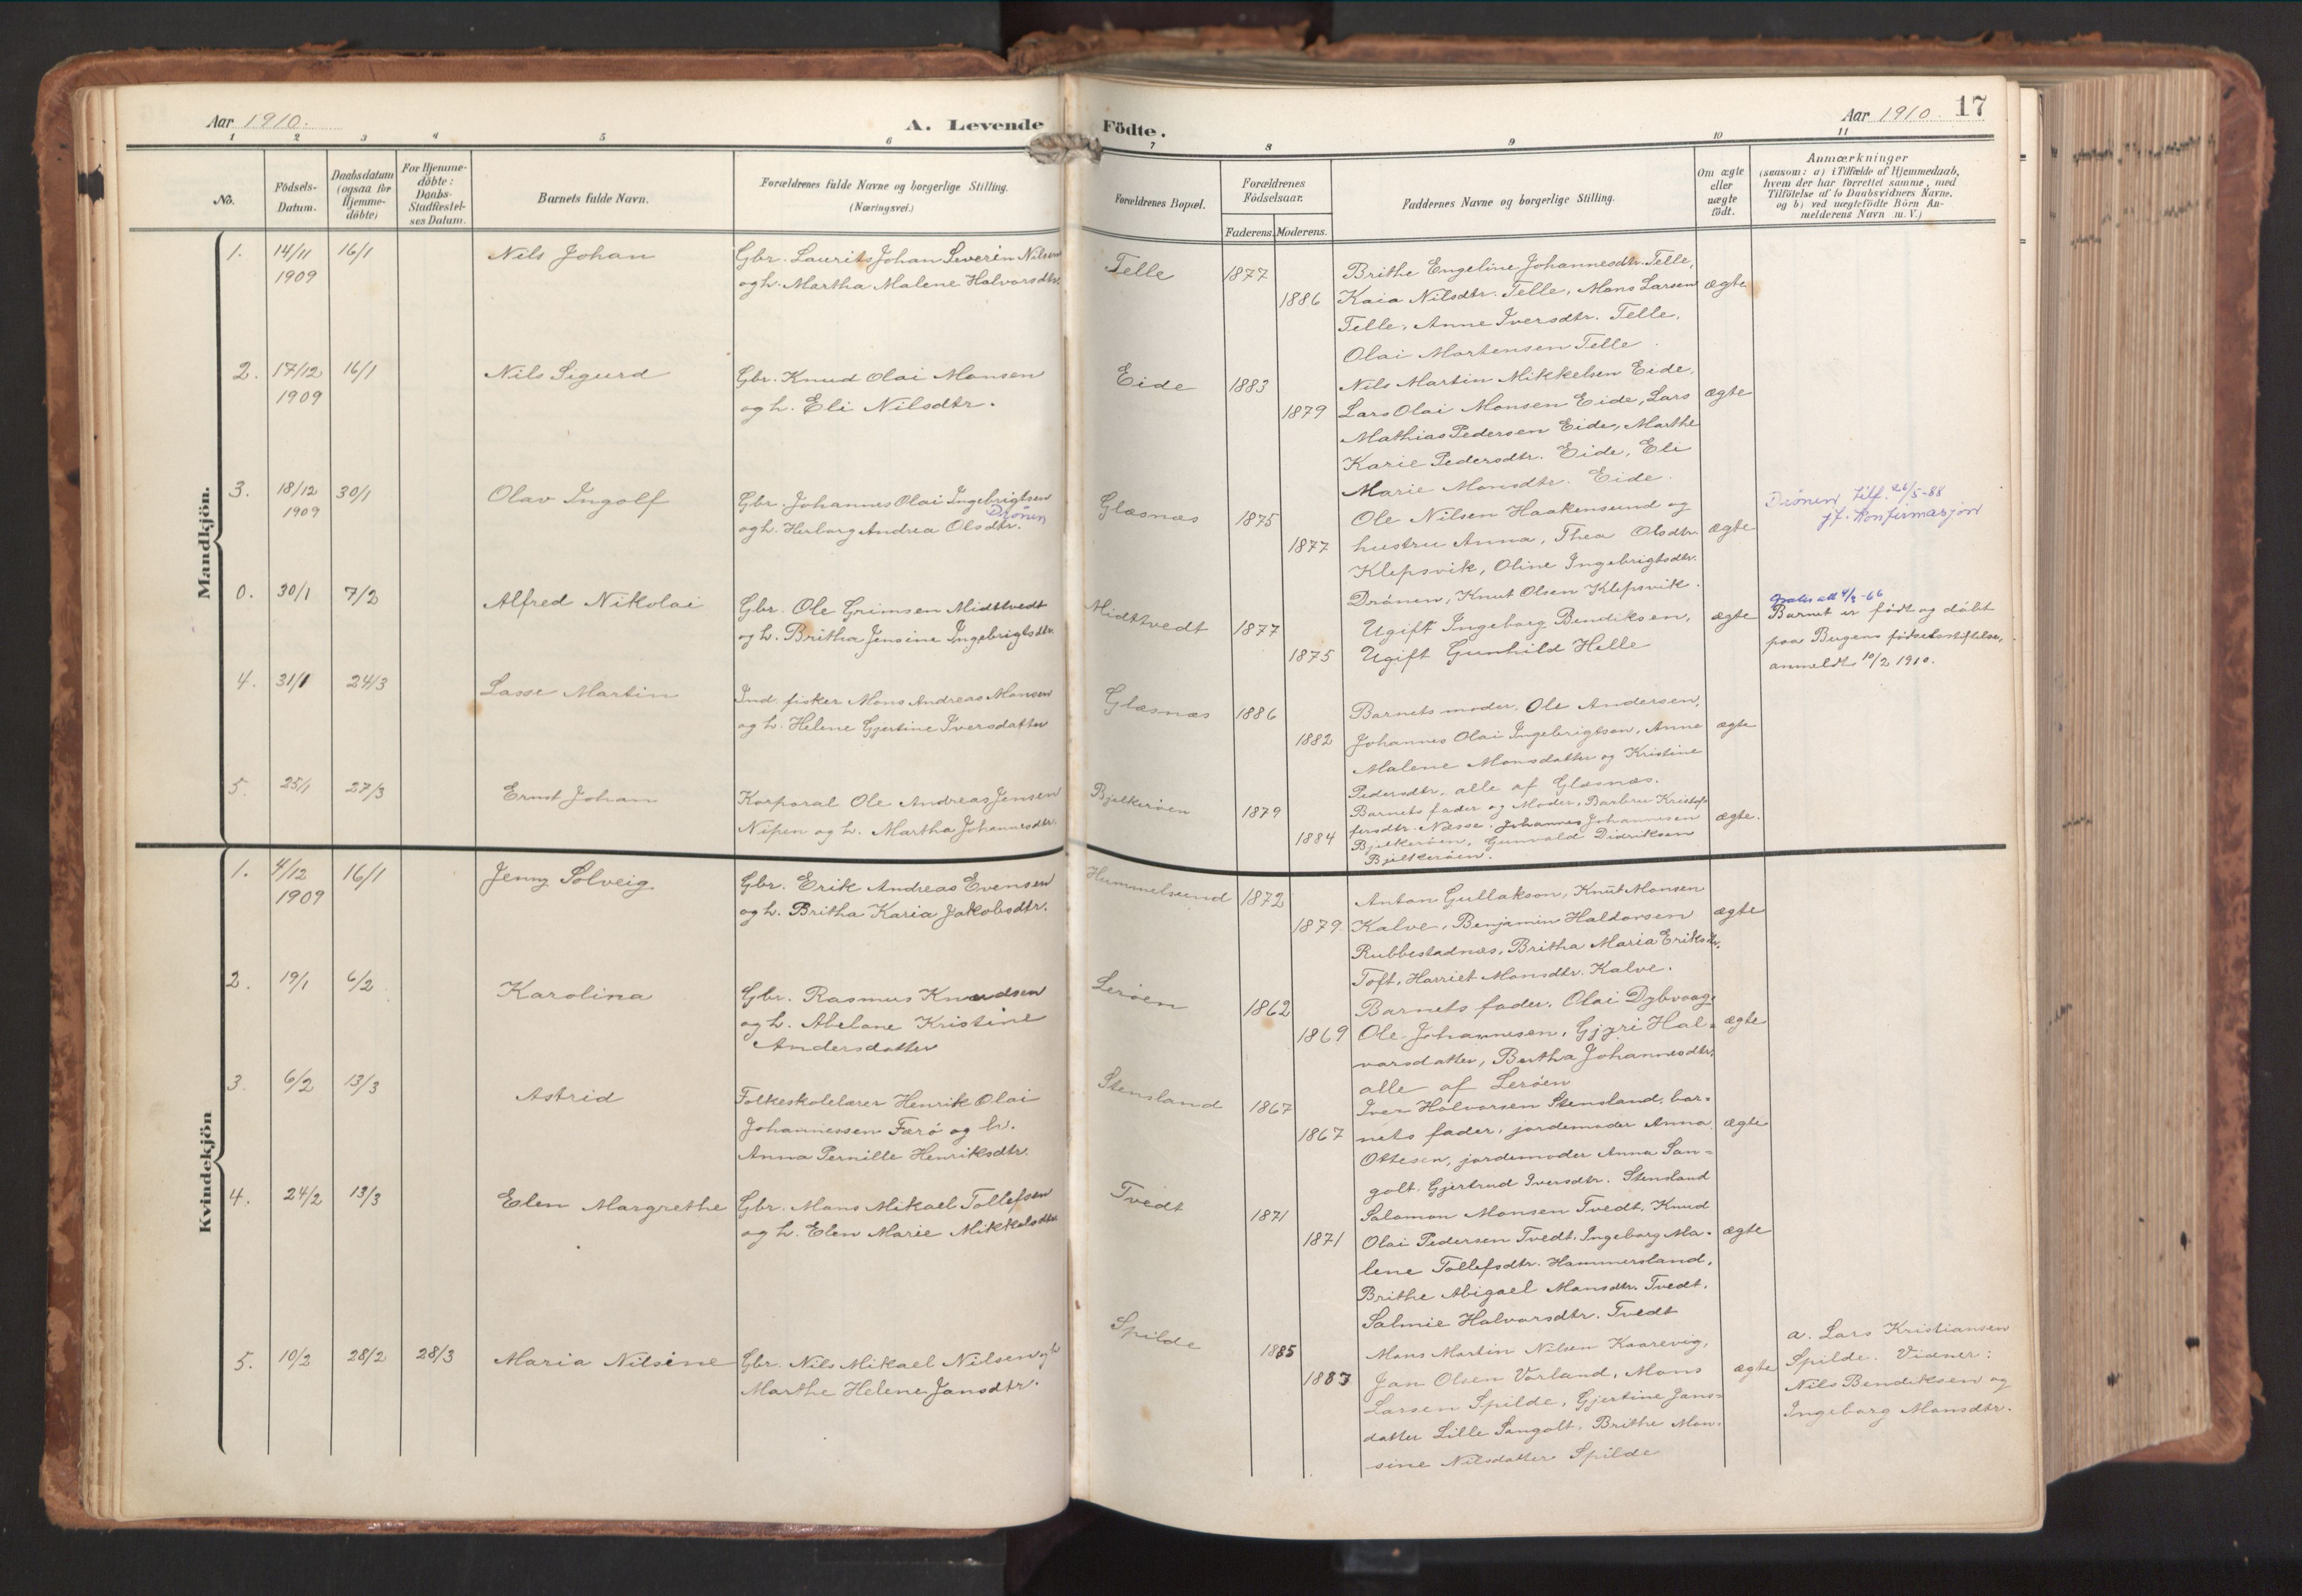 Aar 1910.
A. Levende
1 2 3 4 5 6
No.
Födsels-Datum.
Daabsdatum (ogsaa for Hjemme-döbte)
For Hjemme-döbte: Daabs-Stadfæstel-ses Datum.
Barnets fulde Navn.
Forældrenes fulde Navne og borgerlige Stilling.
(Næringsvei.)
Mandkjön.
1. 14/11 16/1 Nils Johan Gbr. Laurits Johan Severin Nilsen
1909 og h. Martha Malene Halvorsdtr.
2. 17/12 16/1 Nils Sigurd Gbr. Knud Olai Monsen
1909 og h. Eli Nilsdtr.
3. 18/12 30/1 Olav Ingolf Gbr. Johannes Olai Ingebrigtsen
Drönen
1909 og h. Herborg Andrea Olsdtr.
0. 30/1 7/2 Alfred Nikolai Gbr. Ole Grimsen Midttvedt
og h. Britha Jensine Ingebrigtsdtr.
4. 31/1 24/3 Lasse Martin Ind. fisker Mons Andreas Monsen
og h. Helene Gjertine Iversdatter
5. 25/1 27/3 Ernst Johan Korporal Ole Andreas Jensen
Nipen og h. Martha Johannesdtr.
Kvindekjön
1. 4/12 16/1 Jenny Solveig Gbr. Erik Andreas Evensen
1909 og h. Britha Karia Jakobsdtr.
2. 19/1 6/2 Karolina Gbr. Rasmus Knudsen
og h. Abelone Kristine
Andersdatter
3. 6/2 13/3 Astrid Folkeskolelærer Henrik Olai
Johannessen Færö og h.
Anna Pernille Henriksdtr.
4. 24/2 13/3 Elen Margrethe Gbr. Mons Mikael Tollefsen
og h. Elen Marie Mikkelsdtr
5. 10/2 28/2 28/3 Maria Nilsine Gbr. Nils Mikael Nilsen og h
Marthe Helene Jansdtr.
Födte.
Aar 1910. 17
7 8 9 10 11
Forældrenes Bopæl.
Forældrenes Födselsaar.
Faderens. Moderens.
Faddernes Navne og borgerlige Stilling.
Om ægte eller uægte födt.
Anmærkninger
(saasom: a) i Tilfælde af Hjemmedaab,
hvem der har forrettet samme, med
Tilföielse af to Daabsvidners Navne,
og b) ved uægtefödte Börn An-
melderens Navn m. V.)
Telle 1877 Brithe Engeline Johannesdtr. Telle,
1886 Kaia Nilsdtr. Telle, Mons Larsen ægte
Telle, Anne Iversdtr. Telle,
Olai Mortensen Telle.
Eide 1883 Nils Martin Mikkelsen Eide,
1879 Lars Olai Monsen Eide, Lars ægte
Mathias Pedersen Eide, Marthe
Karie Pedersdtr. Eide, Eli
Marie Monsdtr. Eide.
Glæsnæs 1875 Ole Nilsen Haakensund og Drönen tilf. 26/5-88
1877 hustru Anna, Thea Olsdtr. ægte jf. konfirmasjon
Klepsvik, Oline Ingebrigtsdtr.
Drönen, Knut Olsen Klepsvik.
Midttvedt 1877 Ugift Ingeborg Bendiksen, ægte Barnet er födt og döbt
1875 Ugift Gunhild Helle paa Bergens födselsstiftelse,
anmeldt 10/2 1910.
Glæsnæs 1886 Barnets moder, Ole Andersen,
1882 Johannes Olai Ingebrigtsen, Anne ægte
Malene Monsdatter og Kristine
Pedersdtr, alle af Glæsnæs.
Bjelkeröen 1879 Barnets fader og Moder, Barbru Kristof-
1884 fersdtr. Næsse, Johannes Johannesen ægte.
Bjelkeröen, Gunvald Didriksen
Bjelkeröen.
Hummelsund 1872 Anton Gullakson, Knut Monsen
1879 Kalve, Benjamin Haldorsen ægte
Rubbestadnæs, Britha Maria Eriksdtr.
Toft, Harriet Monsdtr. Kalve.
Leröen 1862 Barnets fader, Olai Dybvaag,
1869 Ole Johannesen, Gjyri Hal- ægte
vorsdatter, Bertha Johannesdtr,
alle af Leröen
Stensland 1867 Iver Halvorsen Stensland, bar-
1867 nets fader, jordemoder Anna ægte
Ottesen, jordemoder Anna San-
golt, Gjertrud Iversdtr. Stensland
Tvedt 1871 Salamon Monsen Tvedt, Knud
1871 Olai Pedersen Tvedt, Ingeborg Ma- ægte
lene Tollefsdtr. Hammersland,
Brithe Abigael Monsdtr. Tvedt,
Salmie Halvorsdtr. Tvedt
Spilde 1885 Mons Martin Nilsen Kaarevig, a. Lars Kristiansen
1883 Jan Olsen Vorland, Mons ægte Spilde. Vidner:
Larsen Spilde, Gjertine Jans- Nils Bendiksen og
datter Lille Sangolt, Brithe Mon- Ingeborg Monsdtr.
sine Nilsdatter Spilde